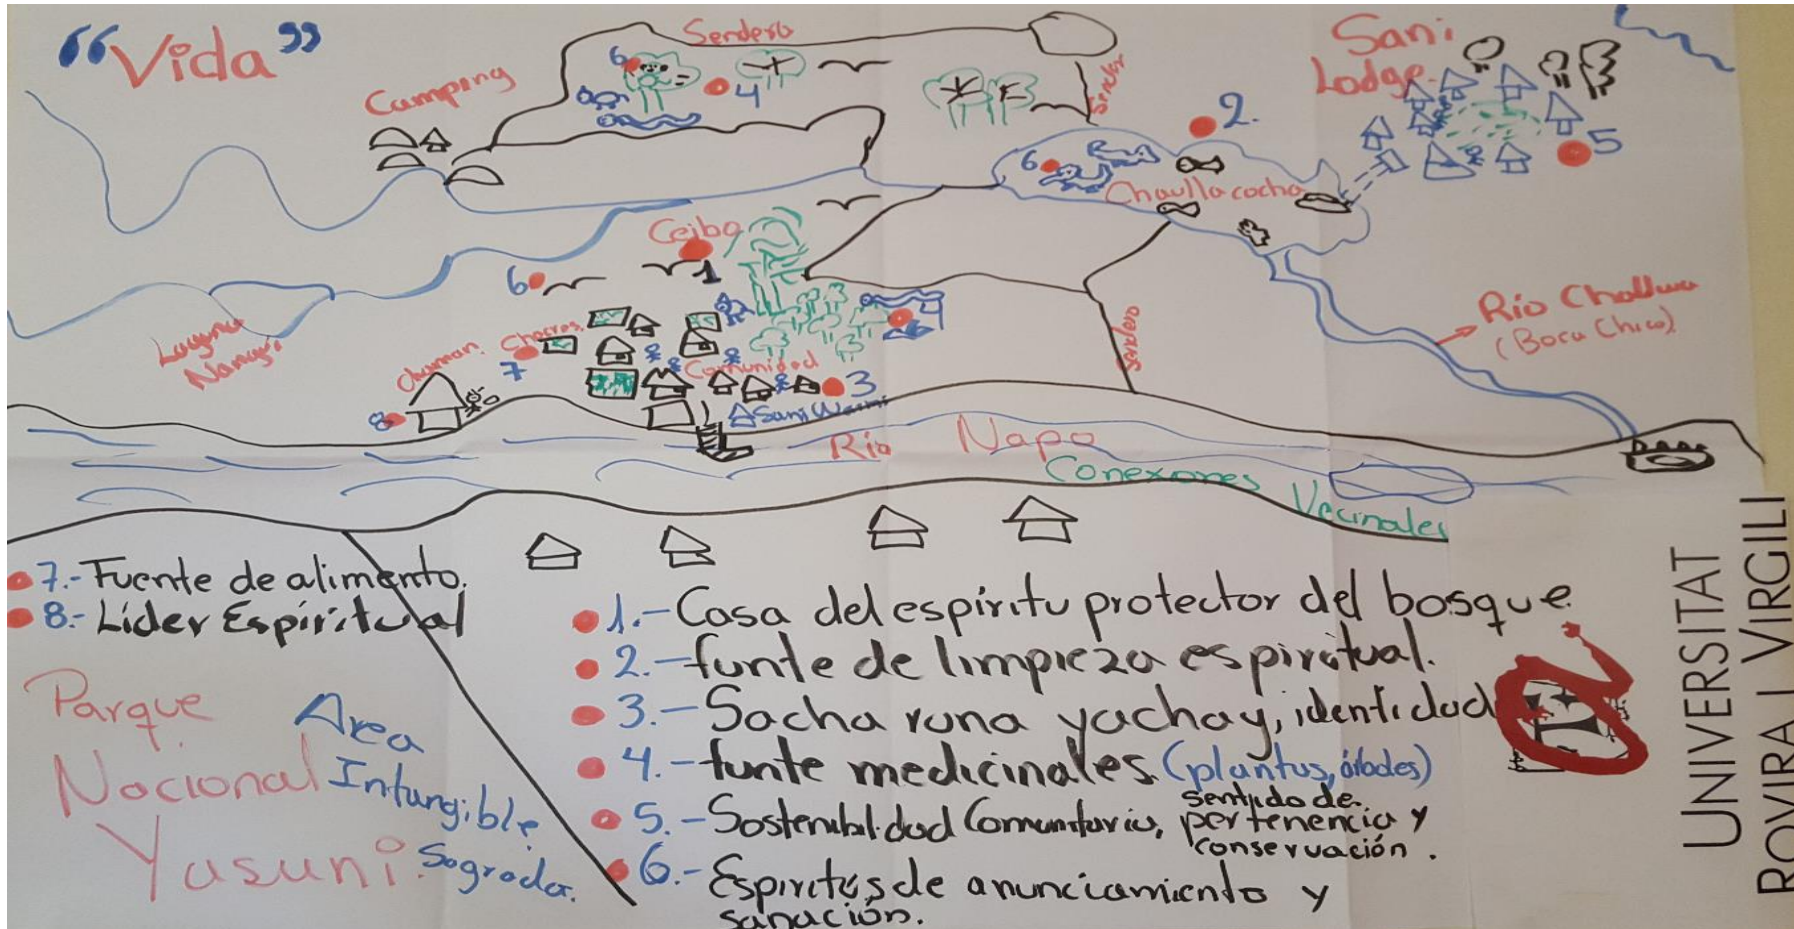 "Vida"
Sendero
Camping
6
4
Sendero
2.
Sani
Lodge
5
6
Chaullacocha
Ceibo
1
6
Laguna
Nanayri
Chacras
7
Chaman
8
Comunidad
3
4
Sani Warmi
Sendero
Río Challwa
(Boca Chica)
Río Napo
Conexiones Vecinales
7.- Fuente de alimento.
8.- Líder Espiritual
Parque
Nacional
Yasuni
Area
Intangible
Sagrada.
1.- Casa del espíritu protector del bosque
2.- funte de limpieza espiritual.
3.- Sacha runa yachay, identidad
4.- funte medicinales (plantas, árbodes)
5.- Sostenibilidad Comunitaria, sentido de
pertenencia y
conservación.
6.- Espiritus de anunciamiento y
sanación.
UNIVERSITAT
ROVIRA I VIRGILI